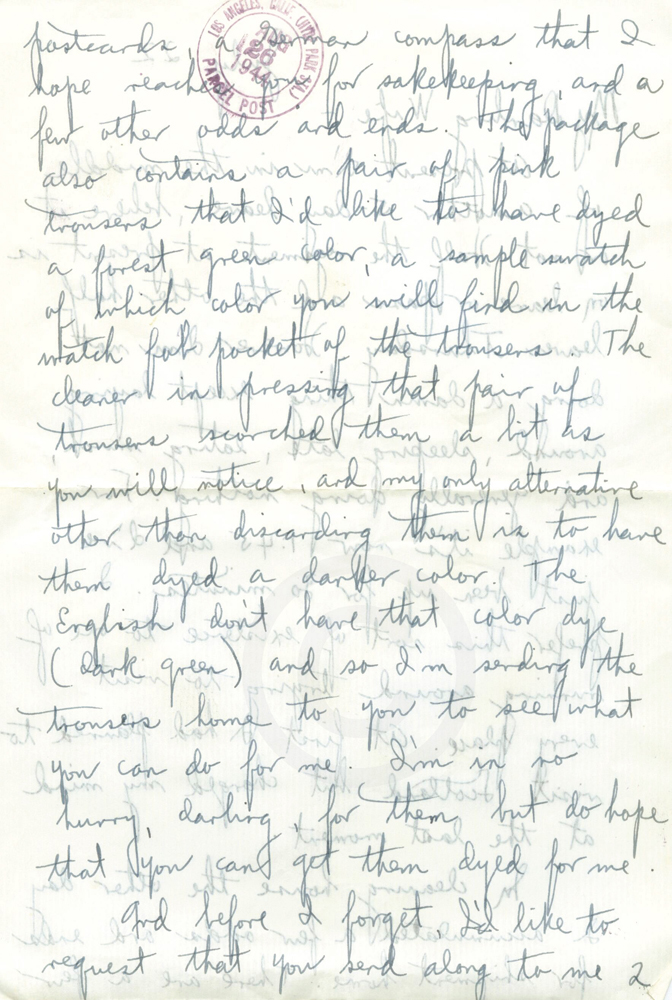 postcards, a German compass that I
hope reaches you for sakekeeping, and a
few other odds and ends. The package
also contains a pair of pink
trousers that I'd like to have dyed
a forest green color, a sample swatch
of which color you will find in the
watch fob pocket of the trousers. The
cleaner in pressing that pair of
trousers scorched them a bit as
you will notice, and my only alternative
other than discarding them is to have
them dyed a darker color. The
English don't have that color dye
(dark green) and so I'm sending the
trousers home to you to see what
you can do for me. I'm in no
hurry, darling, for them, but do hope
that you can get them dyed for me.
And before I forget, I'd like to
request that you send along to me 2
LOS ANGELES, CALIF.
PARCEL POST
26
1944